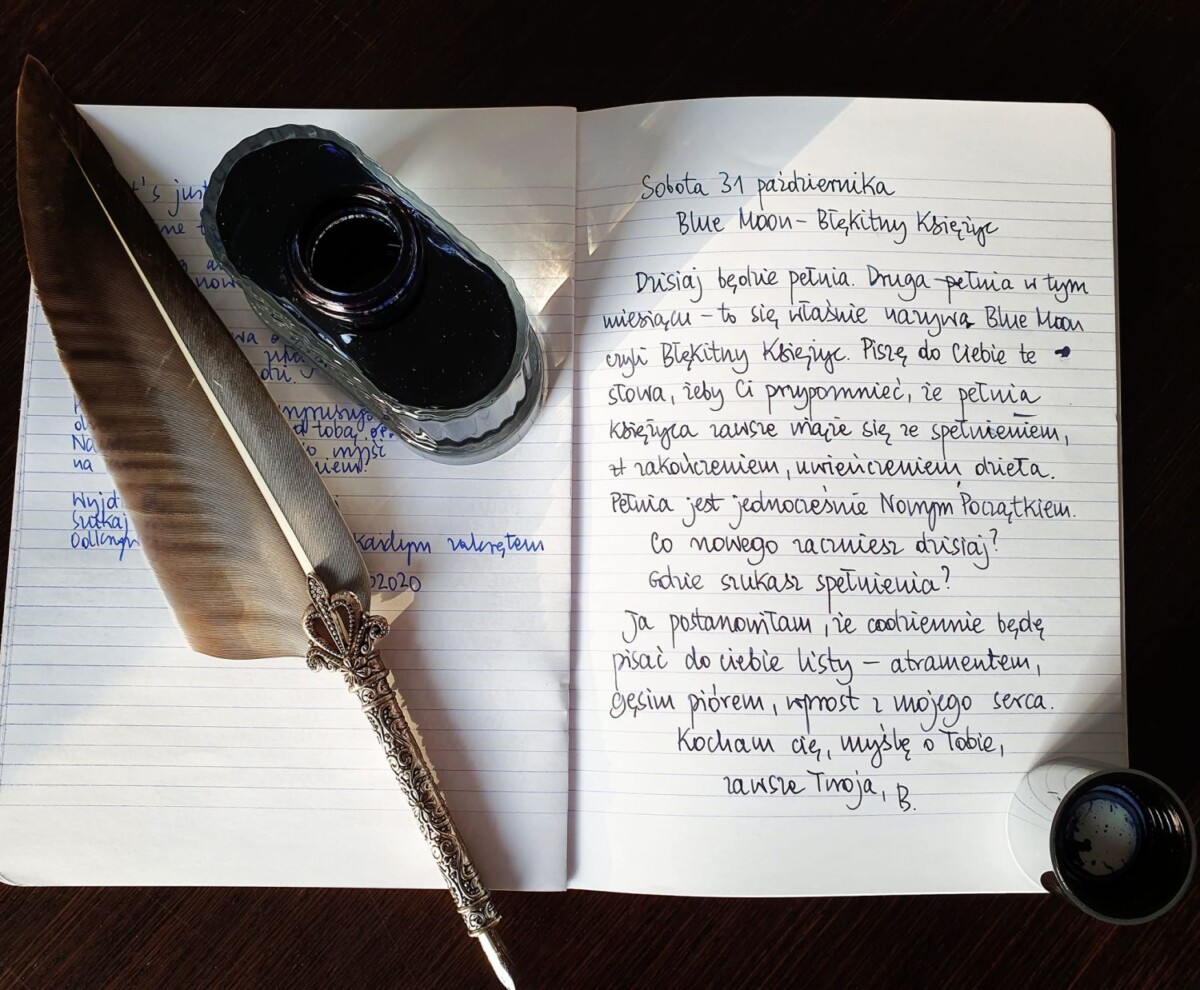 t's just
ne
now
dzi.
tobą
myśl
na
Wyjd
Szukaj
każdym zakrętem
2020
Sobota 31 października
Blue Moon - Błękitny Księżyc
Dzisiaj będzie pełnia. Druga pełnia w tym
miesiącu - to się właśnie nazywa Blue Moon
czyli Błękitny Księżyc. Piszę do Ciebie te
słowa, żeby Ci przypomnieć, że pełnia
Księżyca zawsze wiąże się ze spełnieniem,
z zakończeniem, uwieńczeniem dzieła.
Pełnia jest jednocześnie Nowym Początkiem.
Co nowego zaczniesz dzisiaj?
Gdzie szukasz spełnienia?
Ja postanowiłam, że codziennie będę
pisać do ciebie listy - atramentem,
gęsim piórem, wprost z mojego serca.
Kocham cię, myślę o Tobie,
zawsze Twoja, B.